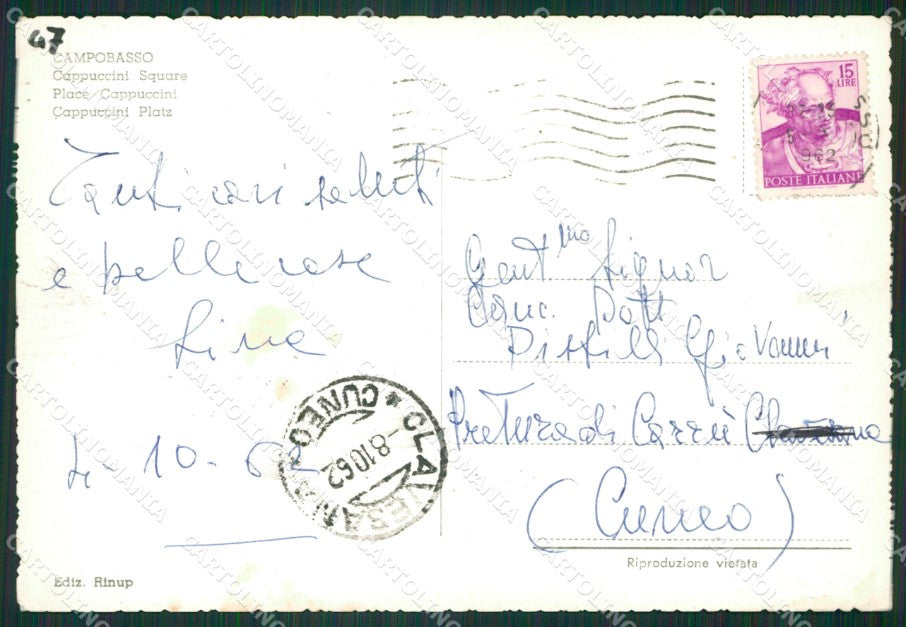 47
CAMPOBASSO
Cappuccini Square
Place Cappuccini
Cappuccini Platz
15
LIRE
POSTE ITALIANE
962
Tanti cari saluti
e belle cose
Lina
4-10-62
CLAVESANA
* CUNEO *
-8.10.62
Gent.mo Signor
Canc. Dott
Pistilli Giovanni
Pretura di Carrù
(Cuneo)
Riproduzione vietata
Ediz. Rinup
CARTOLINOMANIA